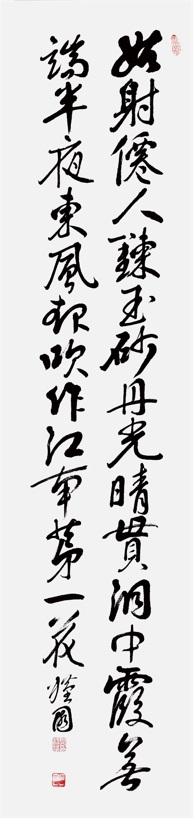 姑射僊人鍊玉砂丹光晴貫洞中霞無
端半夜東風起吹作江南第一花